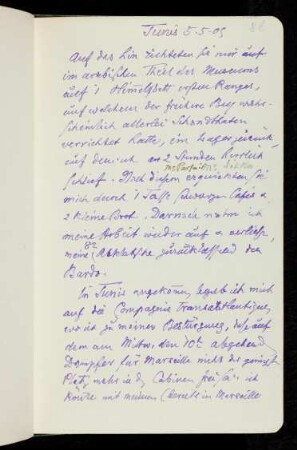 Tunis 5-5-05
Auf das hin richteten sie mir auf
im arabischen Theil des Museums
auf 1 Himmelbett ersten Ranges,
auf welchem der frühere Bey wahr-
scheinlich allerlei Schandthaten
verrichtet hatte, ein Lager zurecht
auf dem ich 2 Stunden herrlich
schlief. Nach diesem erquickten sie
mich durch 1 Tasse schwarzen Cafés u.
2 kleine Brot. Darnach nahm ich
meine Arbeit wieder auf u. verliess,
meine 82 Abklatsche zurücklassend den
Bardo.
In Tunis angekommen begab ich mich
auf die Compagnie Transatlantique,
wo ich zu meiner Bestürzung, dass auf
dem am Mittw. den 10t. abgehend.
Dampfer für Marseille nicht der geringste
Platz mehr in d. Cabinen frei sei. ich
könnte mit meinem Billet in Marseille